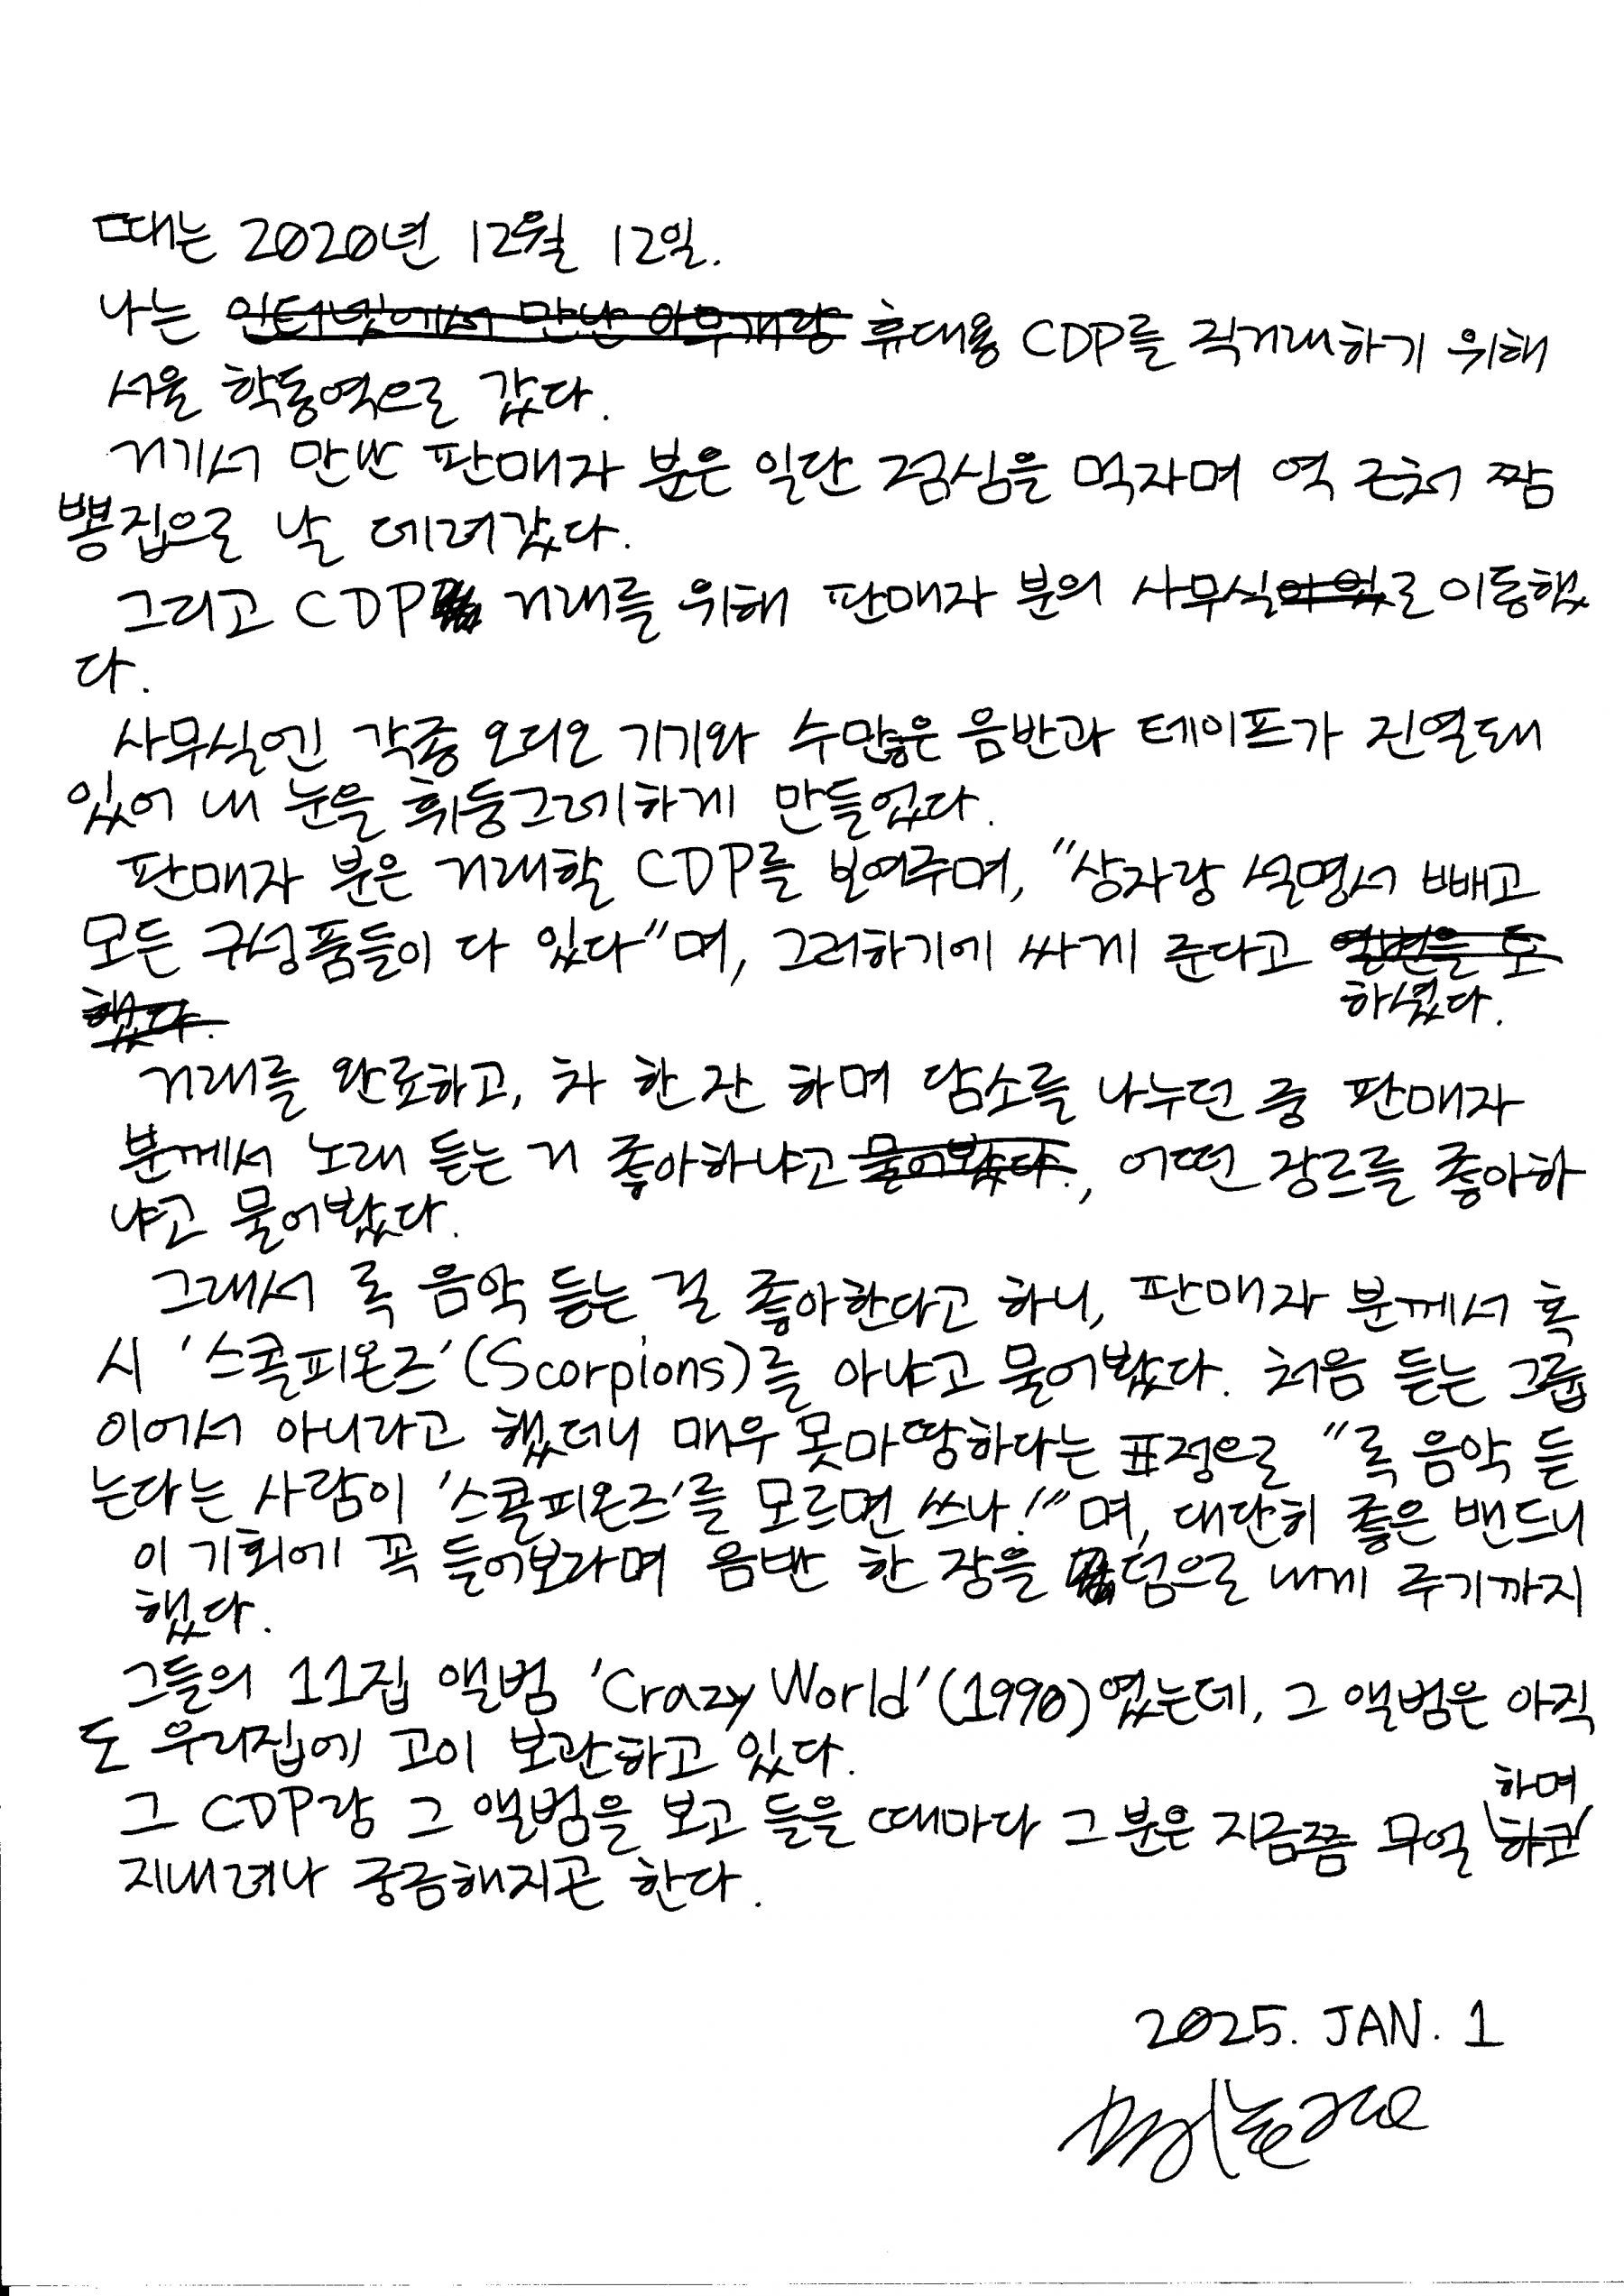 때는 2020년 12월 12일.
나는 인터넷에서 만난 아무개랑 휴대용 CDP를 직거래하기 위해
서울 학동역으로 갔다.
거기서 만난 판매자 분은 일단 점심을 먹자며 역 근처 짬
뽕집으로 날 데려갔다.
그리고 CDP 거래를 위해 판매자 분의 사무실로 이동했
다.
사무실엔 각종 오디오 기기와 수많은 음반과 테이프가 진열돼
있어 내 눈을 휘둥그레하게 만들었다.
판매자 분은 거래할 CDP를 보여주며, "상자랑 설명서 빼고
모든 구성품들이 다 있다"며, 그러하기에 싸게 준다고 열변을 토
했다.
하셨다.
거래를 완료하고, 차 한 잔 하며 담소를 나누던 중 판매자
분께서 노래 듣는 거 좋아하냐고 물어봤다., 어떤 장르를 좋아하
냐고 물어봤다.
그래서 록 음악 듣는 걸 좋아한다고 하니, 판매자 분께서 혹
시 '스콜피온즈'(Scorpions)를 아냐고 물어봤다. 처음 듣는 그룹
이어서 아니라고 했더니 매우 못마땅하다는 표정으로 "록 음악 듣
는다는 사람이 '스콜피온즈'를 모르면 쓰나!"며, 대단히 좋은 밴드니
이 기회에 꼭 들어보라며 음반 한 장을 덤으로 내게 주기까지
했다.
그들의 11집 앨범 'Crazy World'(1990)였는데, 그 앨범은 아직
도 우리집에 고이 보관하고 있다.
하며
그 CDP랑 그 앨범을 보고 들을 때마다 그 분은 지금쯤 무얼 하고
지내려나 궁금해지곤 한다.
2025. JAN. 1